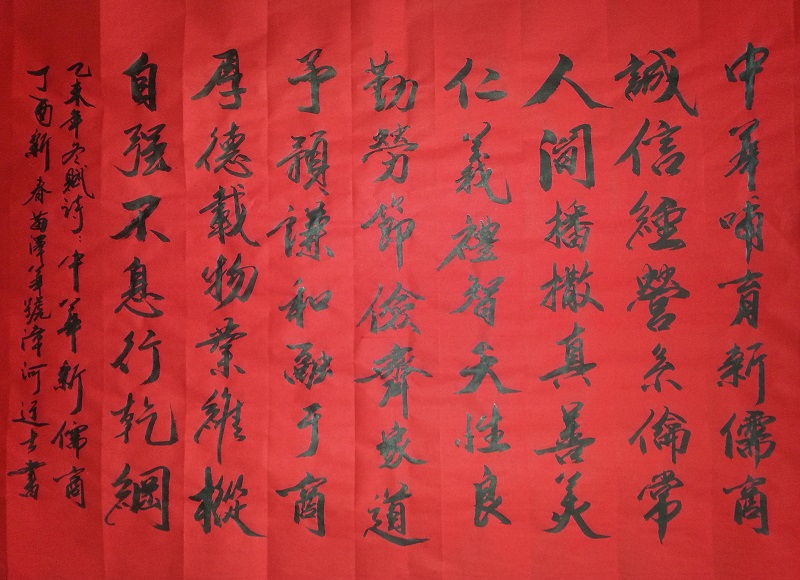 中華哺育新儒商
誠信經營系倫常
人间播撒真善美
仁義禮智天性良
勤勞節儉齊家道
予韻謙和融于商
厚德載物業維樅
自强不息行乾綱
乙未年冬賦詩：中華新儒商
丁酉新春 筆號漳河 士書